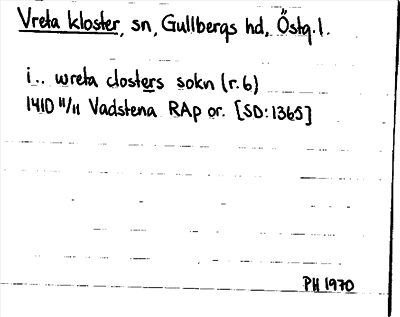 Vreta kloster, sn, Gullbergs hd, Östg.l.
i.. wreta closters sokn (r.6)
1410 11/11 Vadstena RAp or. [SD:1365]
PH 1970